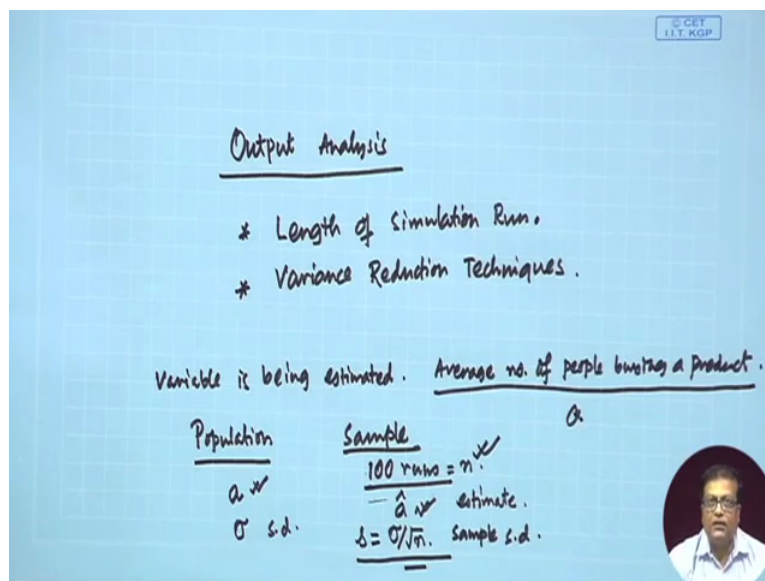 © CET
I.I.T. KGP
Output Analysis
* Length of Simulation Run.
* Variance Reduction Techniques.
Variable is being estimated. Average no. of people buying a product.
a
Population Sample
100 runs = n.
a â estimate.
σ s.d. s = σ/√n. sample s.d.